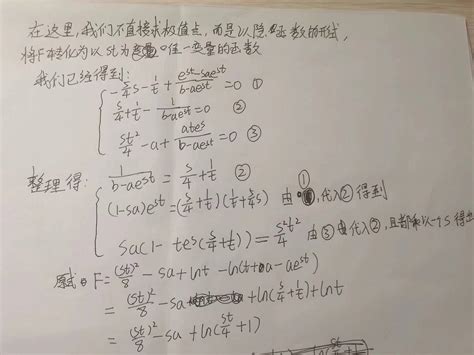 在这里，我们不直接求极值点，而是以隐函数的形式，
将F转化为以st为唯一变量的函数
我们已经得到：
-s/4 - 1/t + (e^st - sae^st)/(b-ae^st) = 0 ①
s/4 + 1/t - 1/(b-ae^st) = 0 ②
st²/4 - a + ate^s/(b-ae^st) = 0 ③
整理得：
1/(b-ae^st) = s/4 + 1/t ②
(1-sa)e^st = (s/4 + 1/t)(1/t + s/4) 由①，代入②得到
sa(1 - te^s(s/4 + 1/t)) = s²t²/4 由③代入②，且都乘以一个s得出
原式 F = (st)²/8 - sa + lnt - ln(a - ae^st)
= (st)²/8 - sa + ln(s/4 + 1/t) + lnt
= (st)²/8 - sa + ln(st/4 + 1)